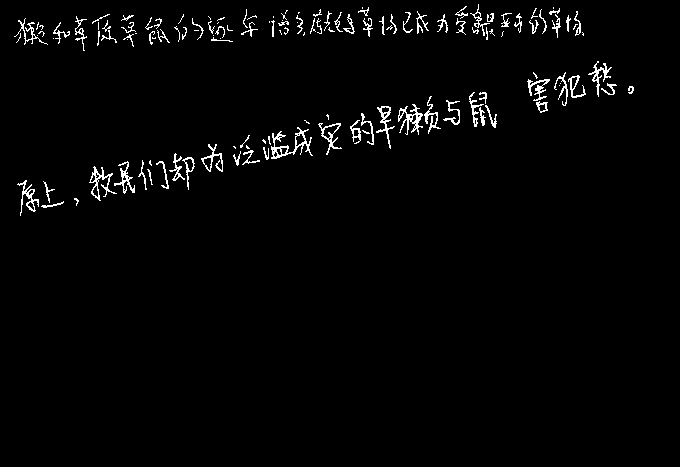 獭和草原草鼠的逐年 草场已成为受鼠 的草场
原上，牧民们却为泛滥成灾的旱獭与鼠 害犯愁。